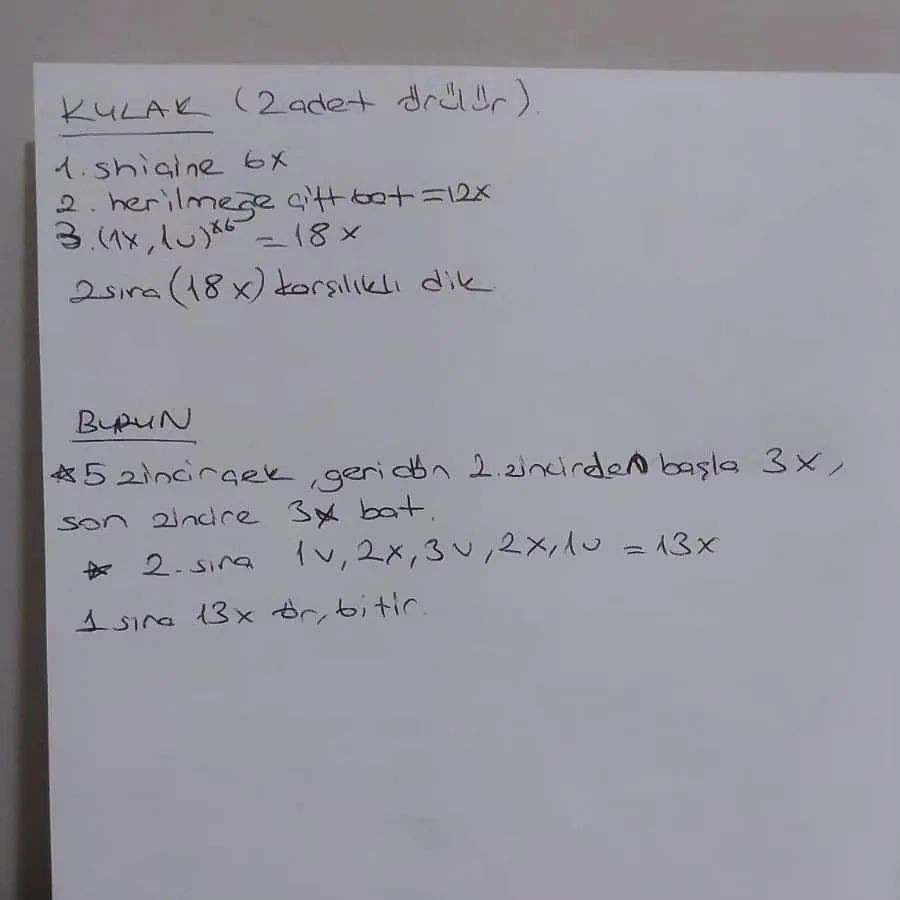 KULAK (2 adet örülür).
1. sihirline 6x
2. her ilmeğe çift bat = 12x
3. (1x, 1v)x6 = 18x
2 sıra (18x) karşılıklı dik
BURUN
*5 zincir çek, geri dön 2. zincirden başla 3x,
son zincire 3x bat.
* 2. sıra 1v, 2x, 3v, 2x, 1v = 13x
1 sıra 13x ör, bitir.